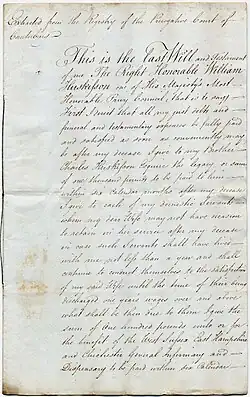 Extracted from the Registry of the Prerogative Court of
Canterbury
This is the Last Will and Testament
of me The Right Honorable William
Huskisson one of His Majesty's Most
Honorable Privy Council, that is to say
First I direct that all my just debts and
funeral and testamentary expences be fully paid
and satisfied as soon as conveniently may
be after my decease I give to my Brother
Charles Huskisson Esquire the legacy or sum
of one thousand pounds to be paid to him
within six Calendar months after my decease
I give to each of my domestic Servants
whom my dear Wife may not have occasion
to retain in her service after my decease
in case such Servants shall have lived
with me not less than a year and shall
continue to conduct themselves to the satisfaction
of my said Wife until the time of their being
discharged one years wages over and above
what shall be then due to them I give the
sum of One hundred pounds unto or for
the benefit of the West Sussex East Hampshire
and Chichester General Infirmary and
Dispensary to be paid within six Calendar